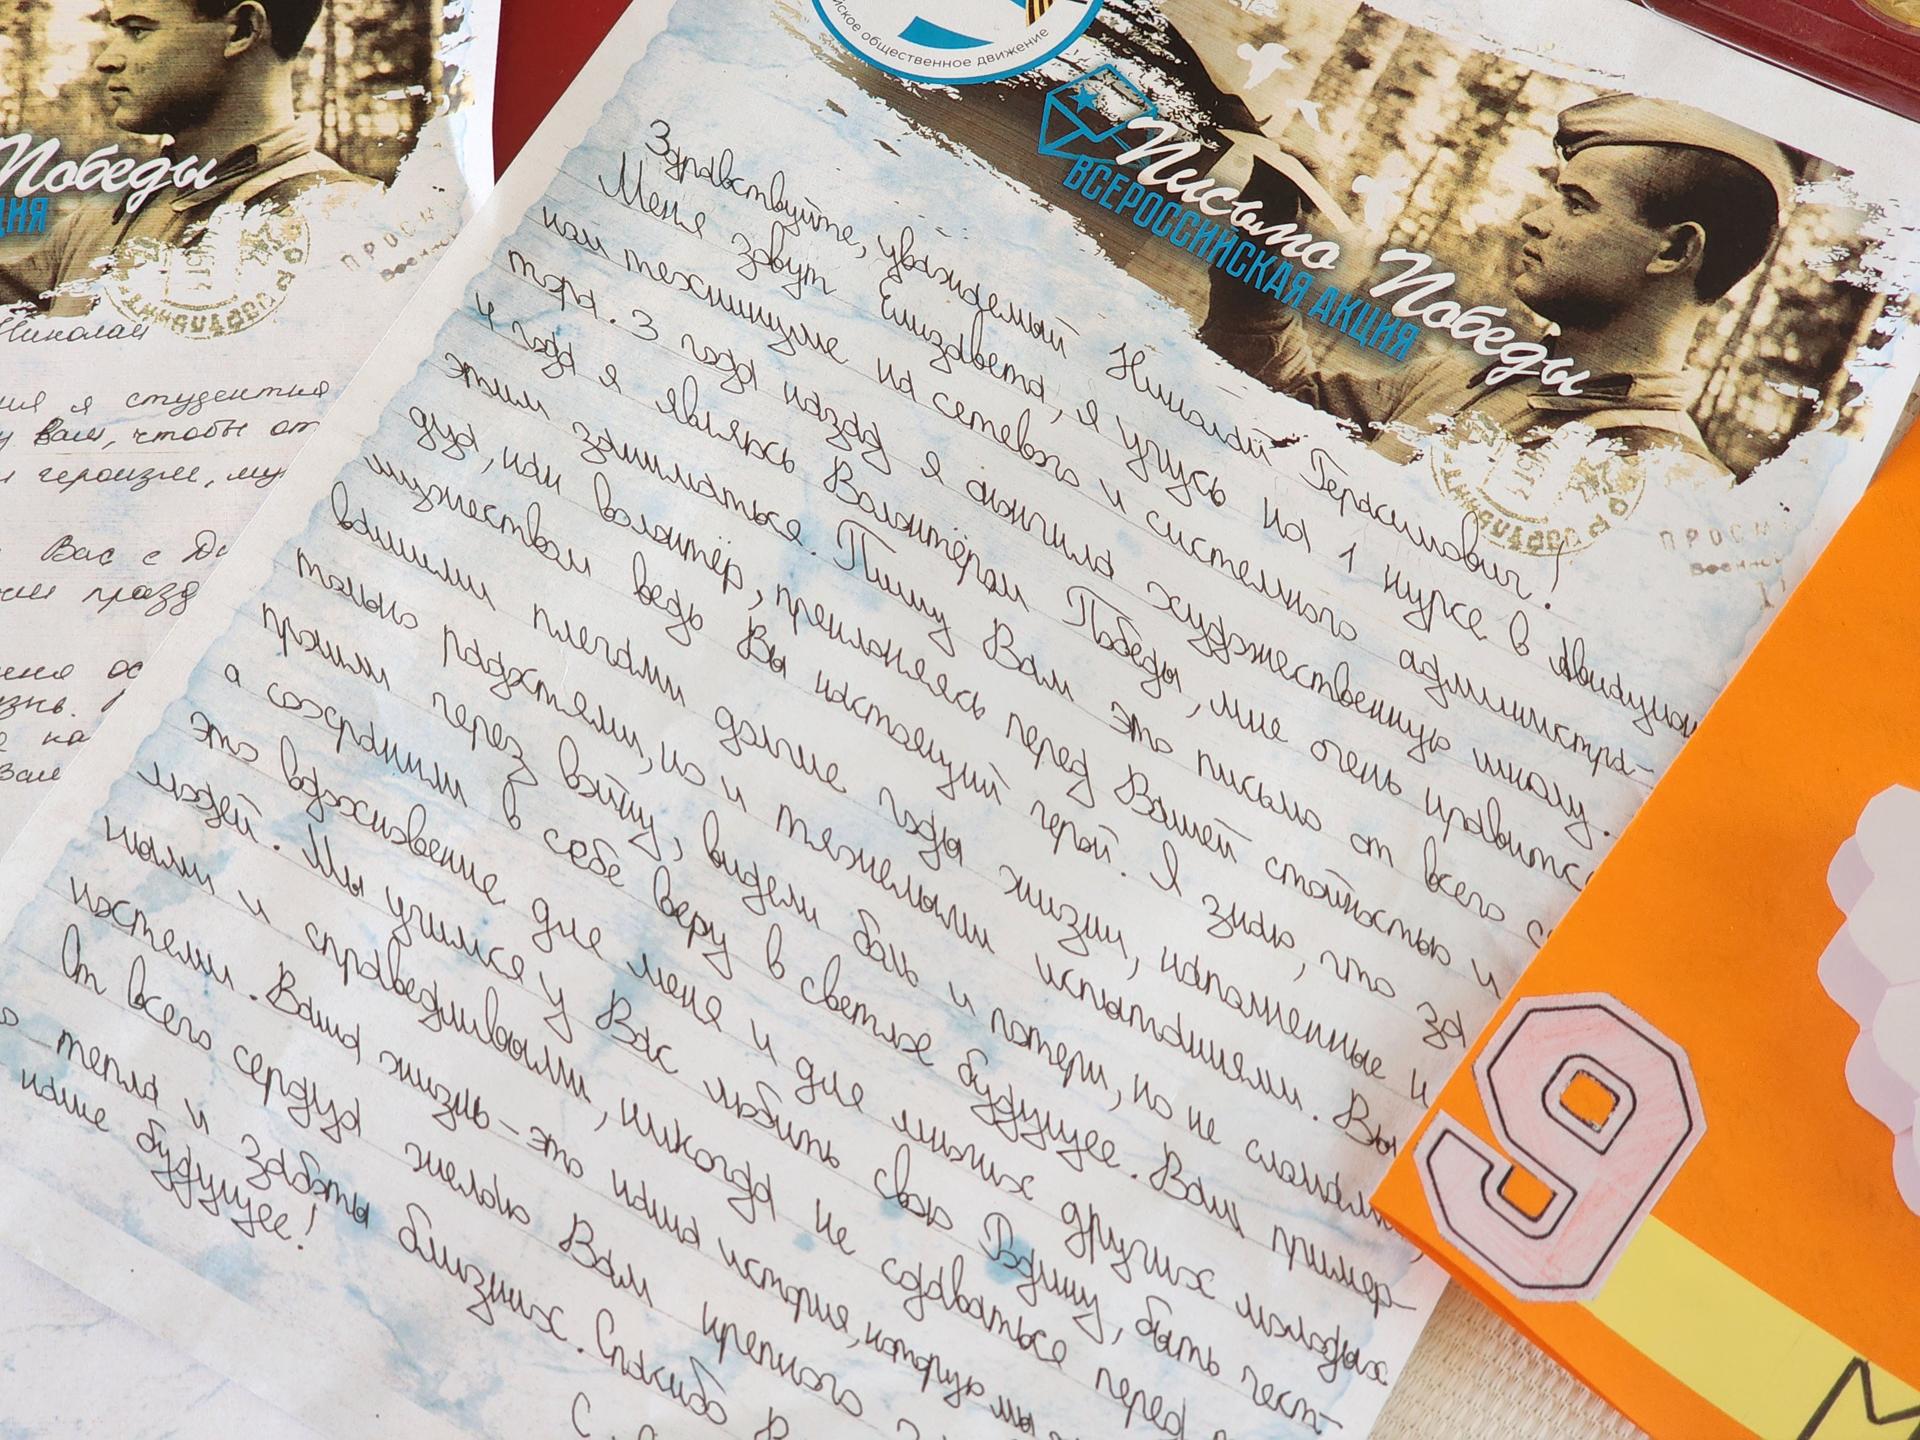 йское общественное движение
Письмо Победы
ВСЕРОССИЙСКАЯ АКЦИЯ
Здравствуйте, уважаемый Николай Герасимович!
Меня зовут Елизавета, я учусь на 1 курсе в Авиацион
ном техникуме на сетевого и системного администра-
тора. 3 года назад я окончила художественную школу.
4 года я являюсь Волонтёром Победы, мне очень нравится
этим заниматься. Пишу Вам это письмо от всего се
дца, как волонтёр, преклоняясь перед Вашей стойкостью и
мужеством ведь Вы настоящий герой. Я знаю, что за
вашими плечами долгие годы жизни, наполненные и
только радостями, но и тяжелыми испытаниями. Вы
прошли через войну, видели боль и потери, но не сломались,
а сохранили в себе веру в светлое будущее. Ваш пример-
это вдохновение для меня и для многих других молодых
людей. Мы учимся у Вас любить свою Родину, быть чест-
ными и справедливыми, никогда не сдаваться перед
ностями. Ваша жизнь-это наша история, которую мы
От всего сердца желаю Вам крепкого
о тепла и заботы близких. Спасибо
наше будущее!
С
Победы
ЦИЯ
Николай
я студентка
Вам, чтобы от
героизм, му
Вас с Д
празд
ПРОСМ
9
М